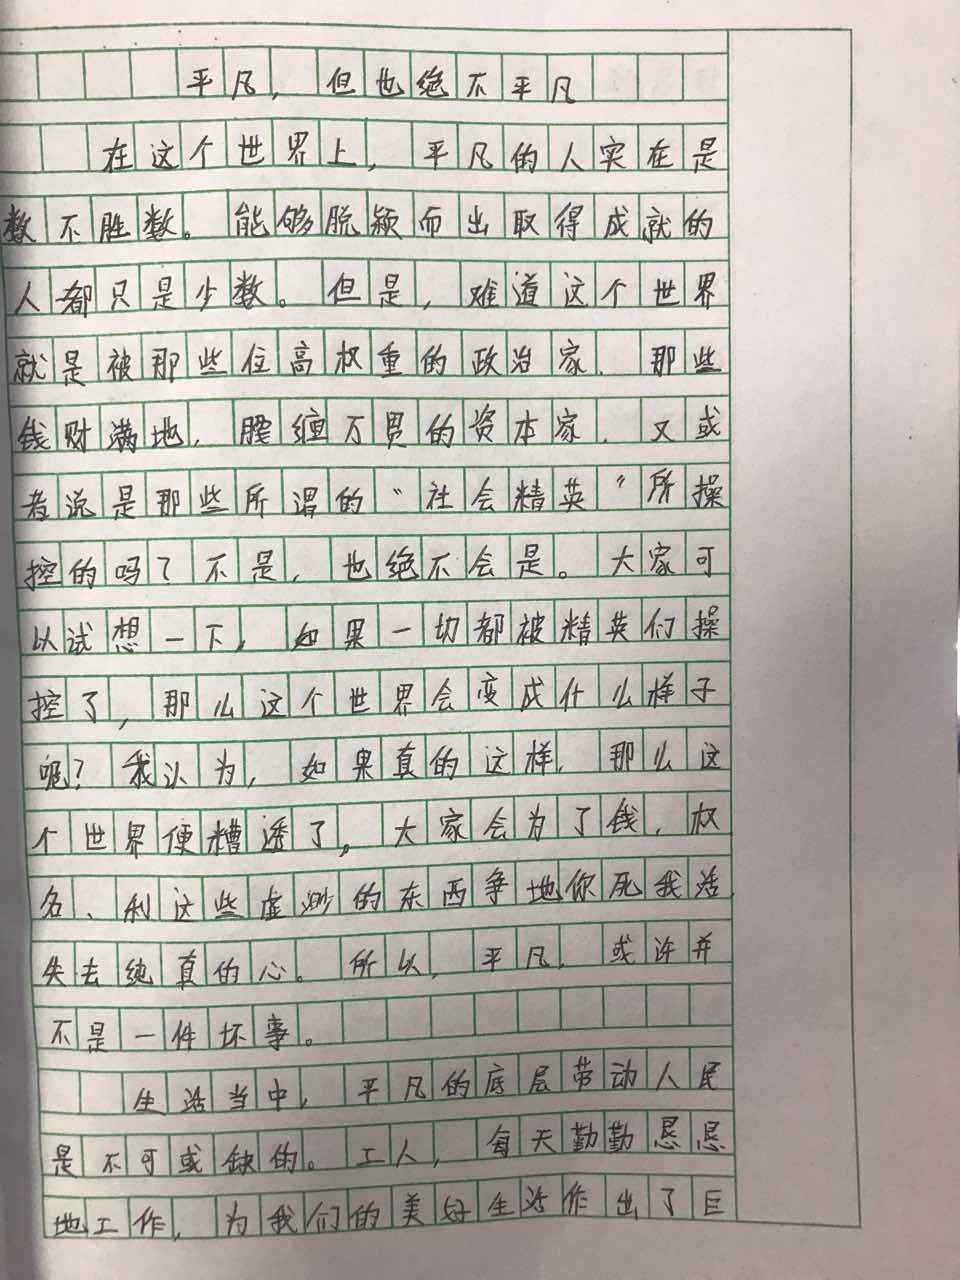 平凡，但也绝不平凡
在这个世界上，平凡的人实在是
数不胜数。能够脱颖而出取得成就的
人都只是少数。但是，难道这个世界
就是被那些位高权重的政治家、那些
钱财满地，腰缠万贯的资本家、又或
者说是那些所谓的“社会精英”所操
控的吗？不是，也绝不会是。大家可
以试想一下，如果一切都被精英们操
控了，那么这个世界会变成什么样子
呢？我认为，如果真的这样，那么这
个世界便糟透了，大家会为了钱、权
名、利这些虚渺的东西争地你死我活，
失去纯真的心。所以，平凡，或许并
不是一件坏事。
生活当中，平凡的底层劳动人民
是不可或缺的。工人，每天勤勤恳恳
地工作，为我们的美好生活作出了巨